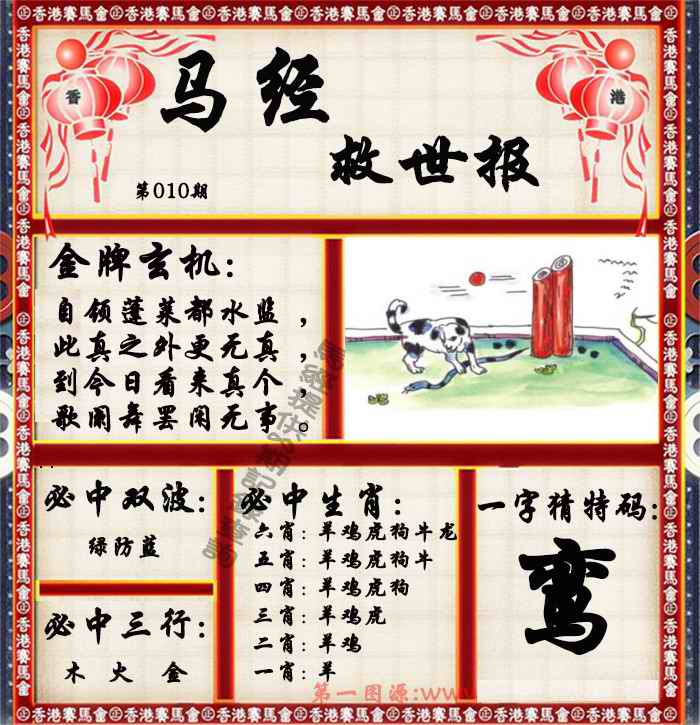 香港賽馬會
香
港
马经
救世报
第010期
金牌玄机：
自领蓬莱都水监，
此真之外更无真，
到今日看来真个，
歌阑舞罢闲无事。
必中双波：
绿防蓝
必中三行：
木 火 金
必中生肖：
六肖：羊鸡虎狗牛龙
五肖：羊鸡虎狗牛
四肖：羊鸡虎狗
三肖：羊鸡虎
二肖：羊鸡
一肖：羊
一字猜特码：
鸾
第一图源:www